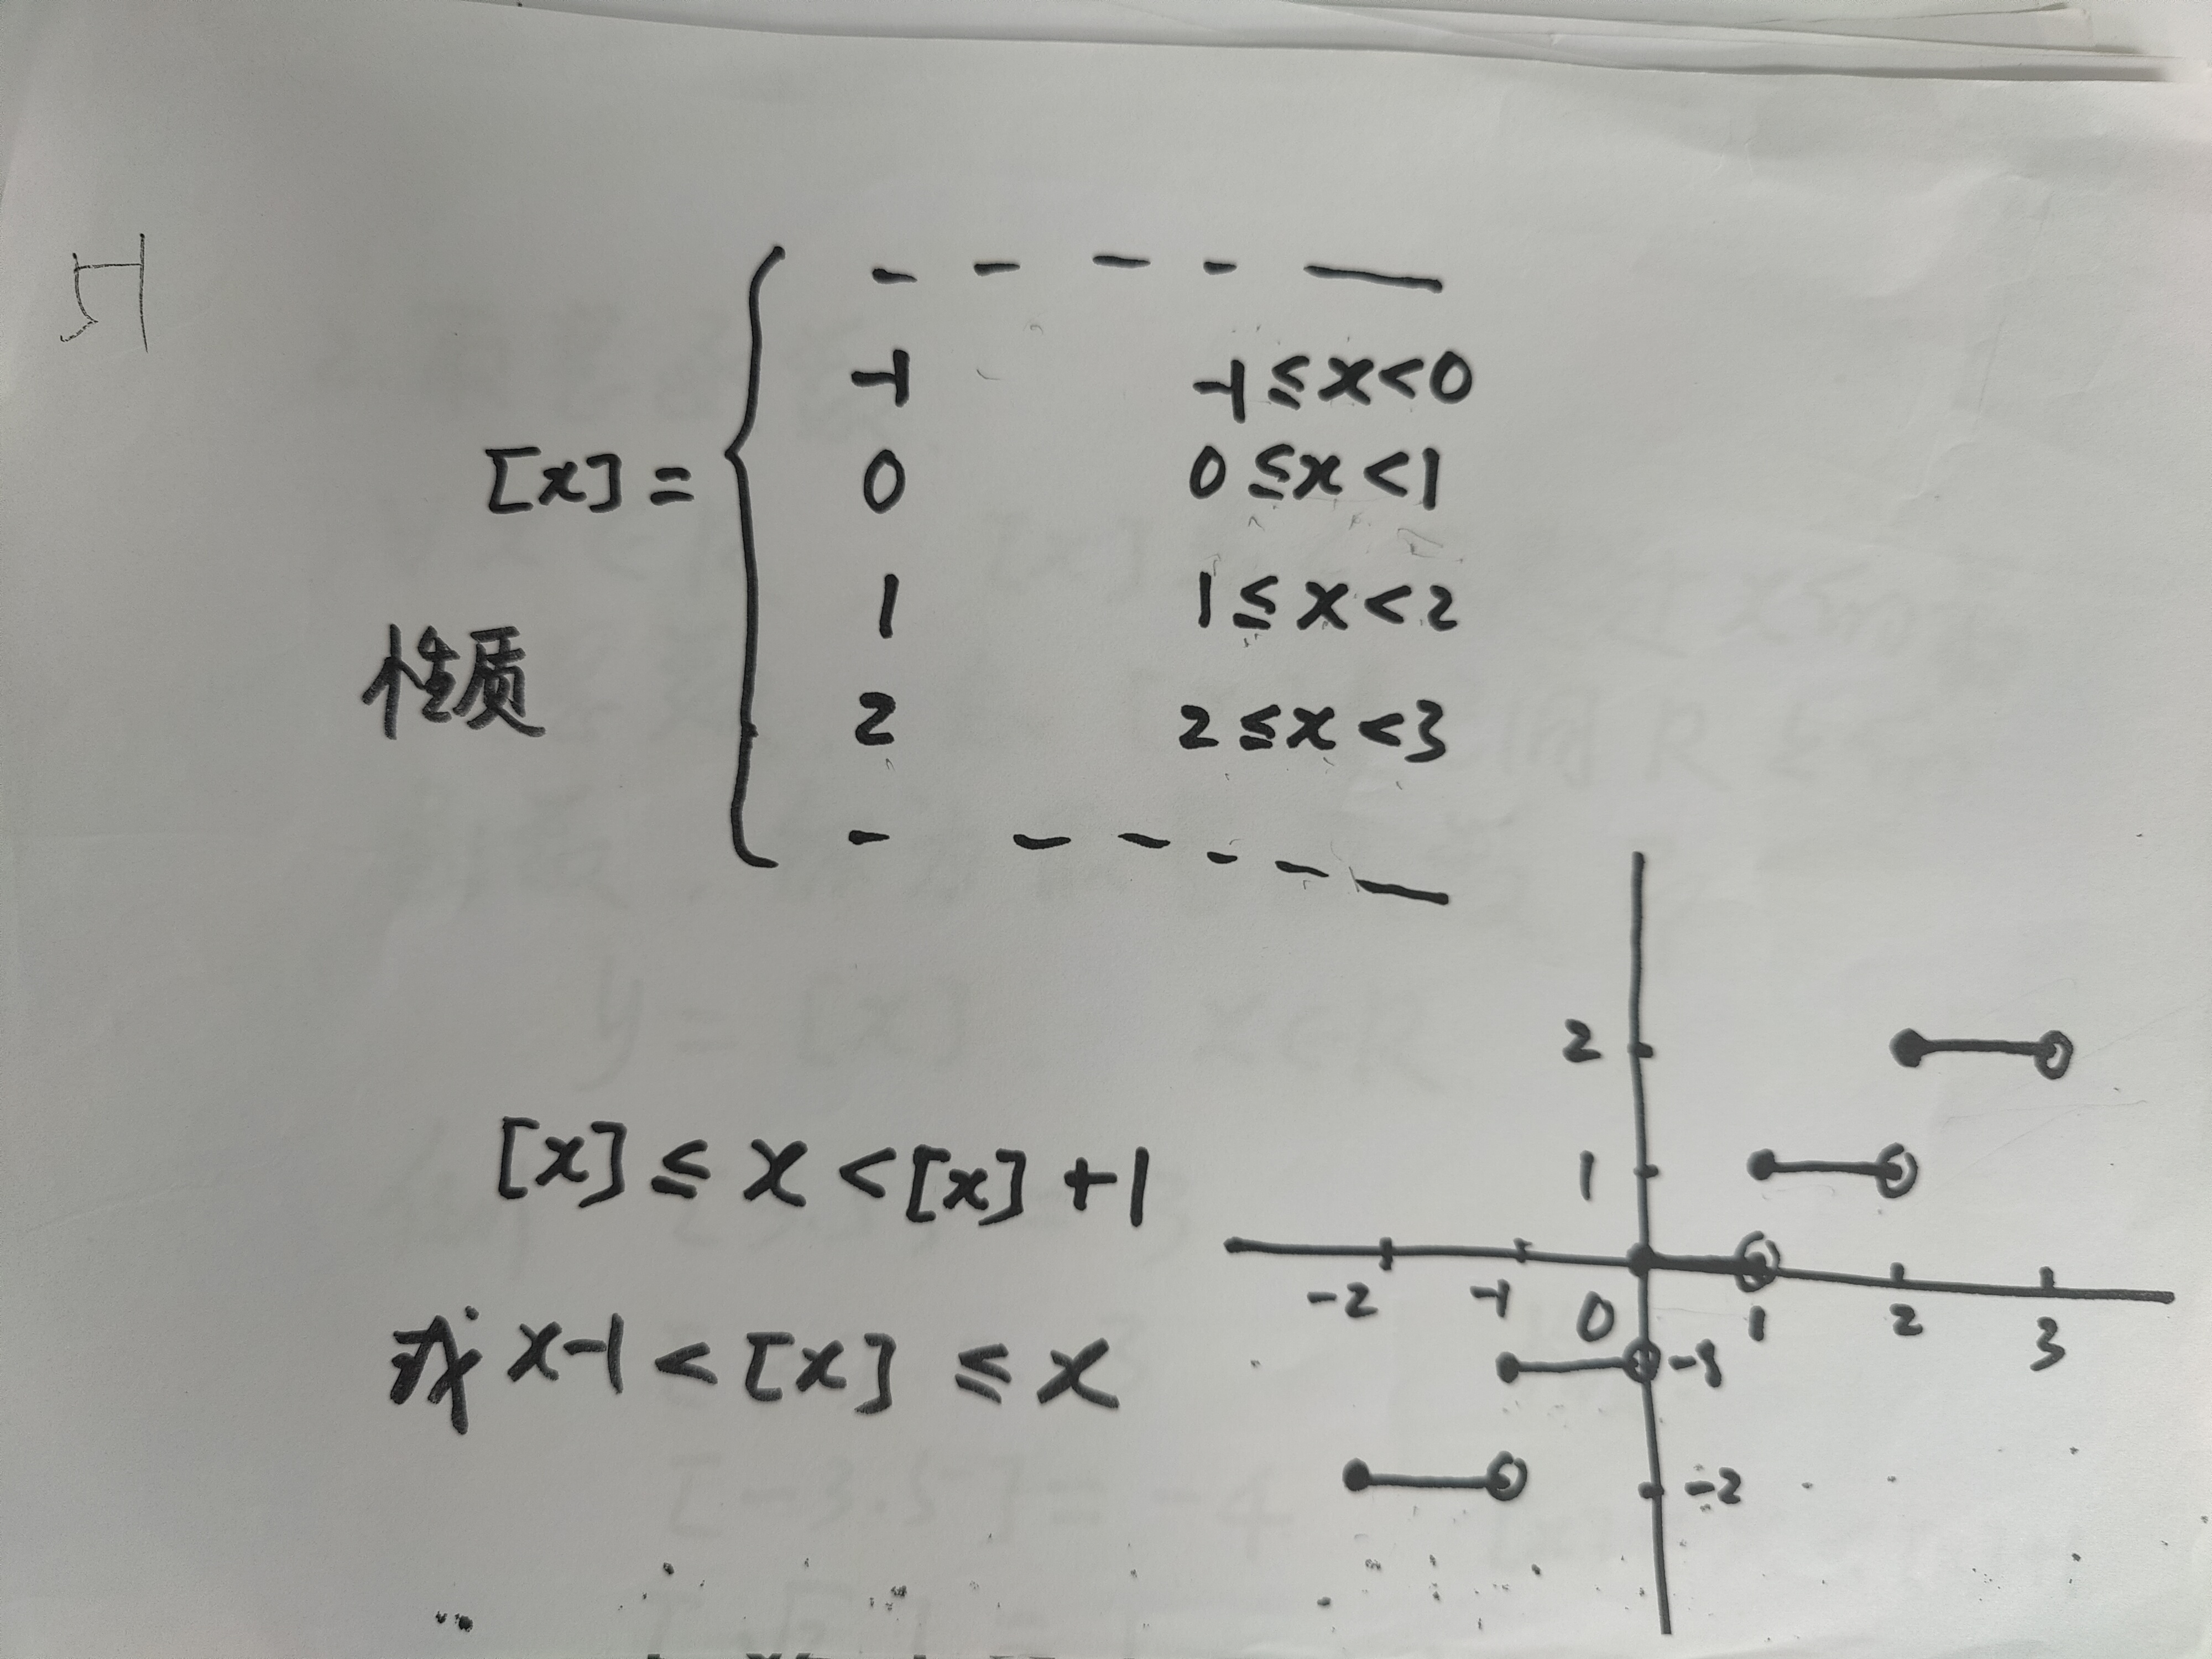 51
-1 -1≤x<0
[x]= 0 0≤x<1
1 1≤x<2
性质
2 2≤x<3
[x]≤x<[x]+1
或 x-1<[x]≤x
2
1
-2 -1 0 1 2 3
-1
-2